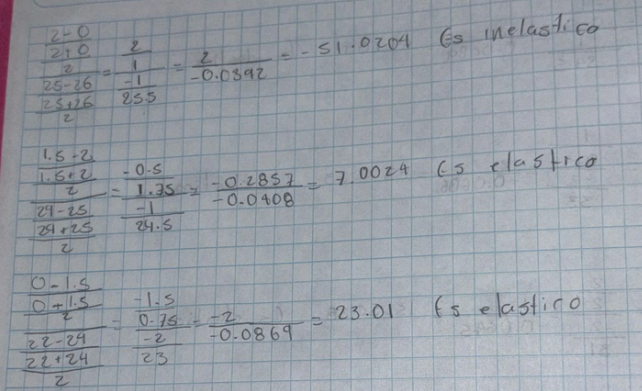 2-0
2+0
2
25-26
25+26
2
=
2
1
-1
255
= 2
-0.0392
= -51.0204 Es inelastico
1.5-2
1.5+2
2
24-25
24+25
2
=
-0.5
1.75
-1
24.5
= -0.2857
-0.0408
= 7.0024 Es elastico
0-1.5
0+1.5
2
22-24
22+24
2
=
-1.5
0.75
-2
23
= -2
-0.0869
= 23.01 Es elastico